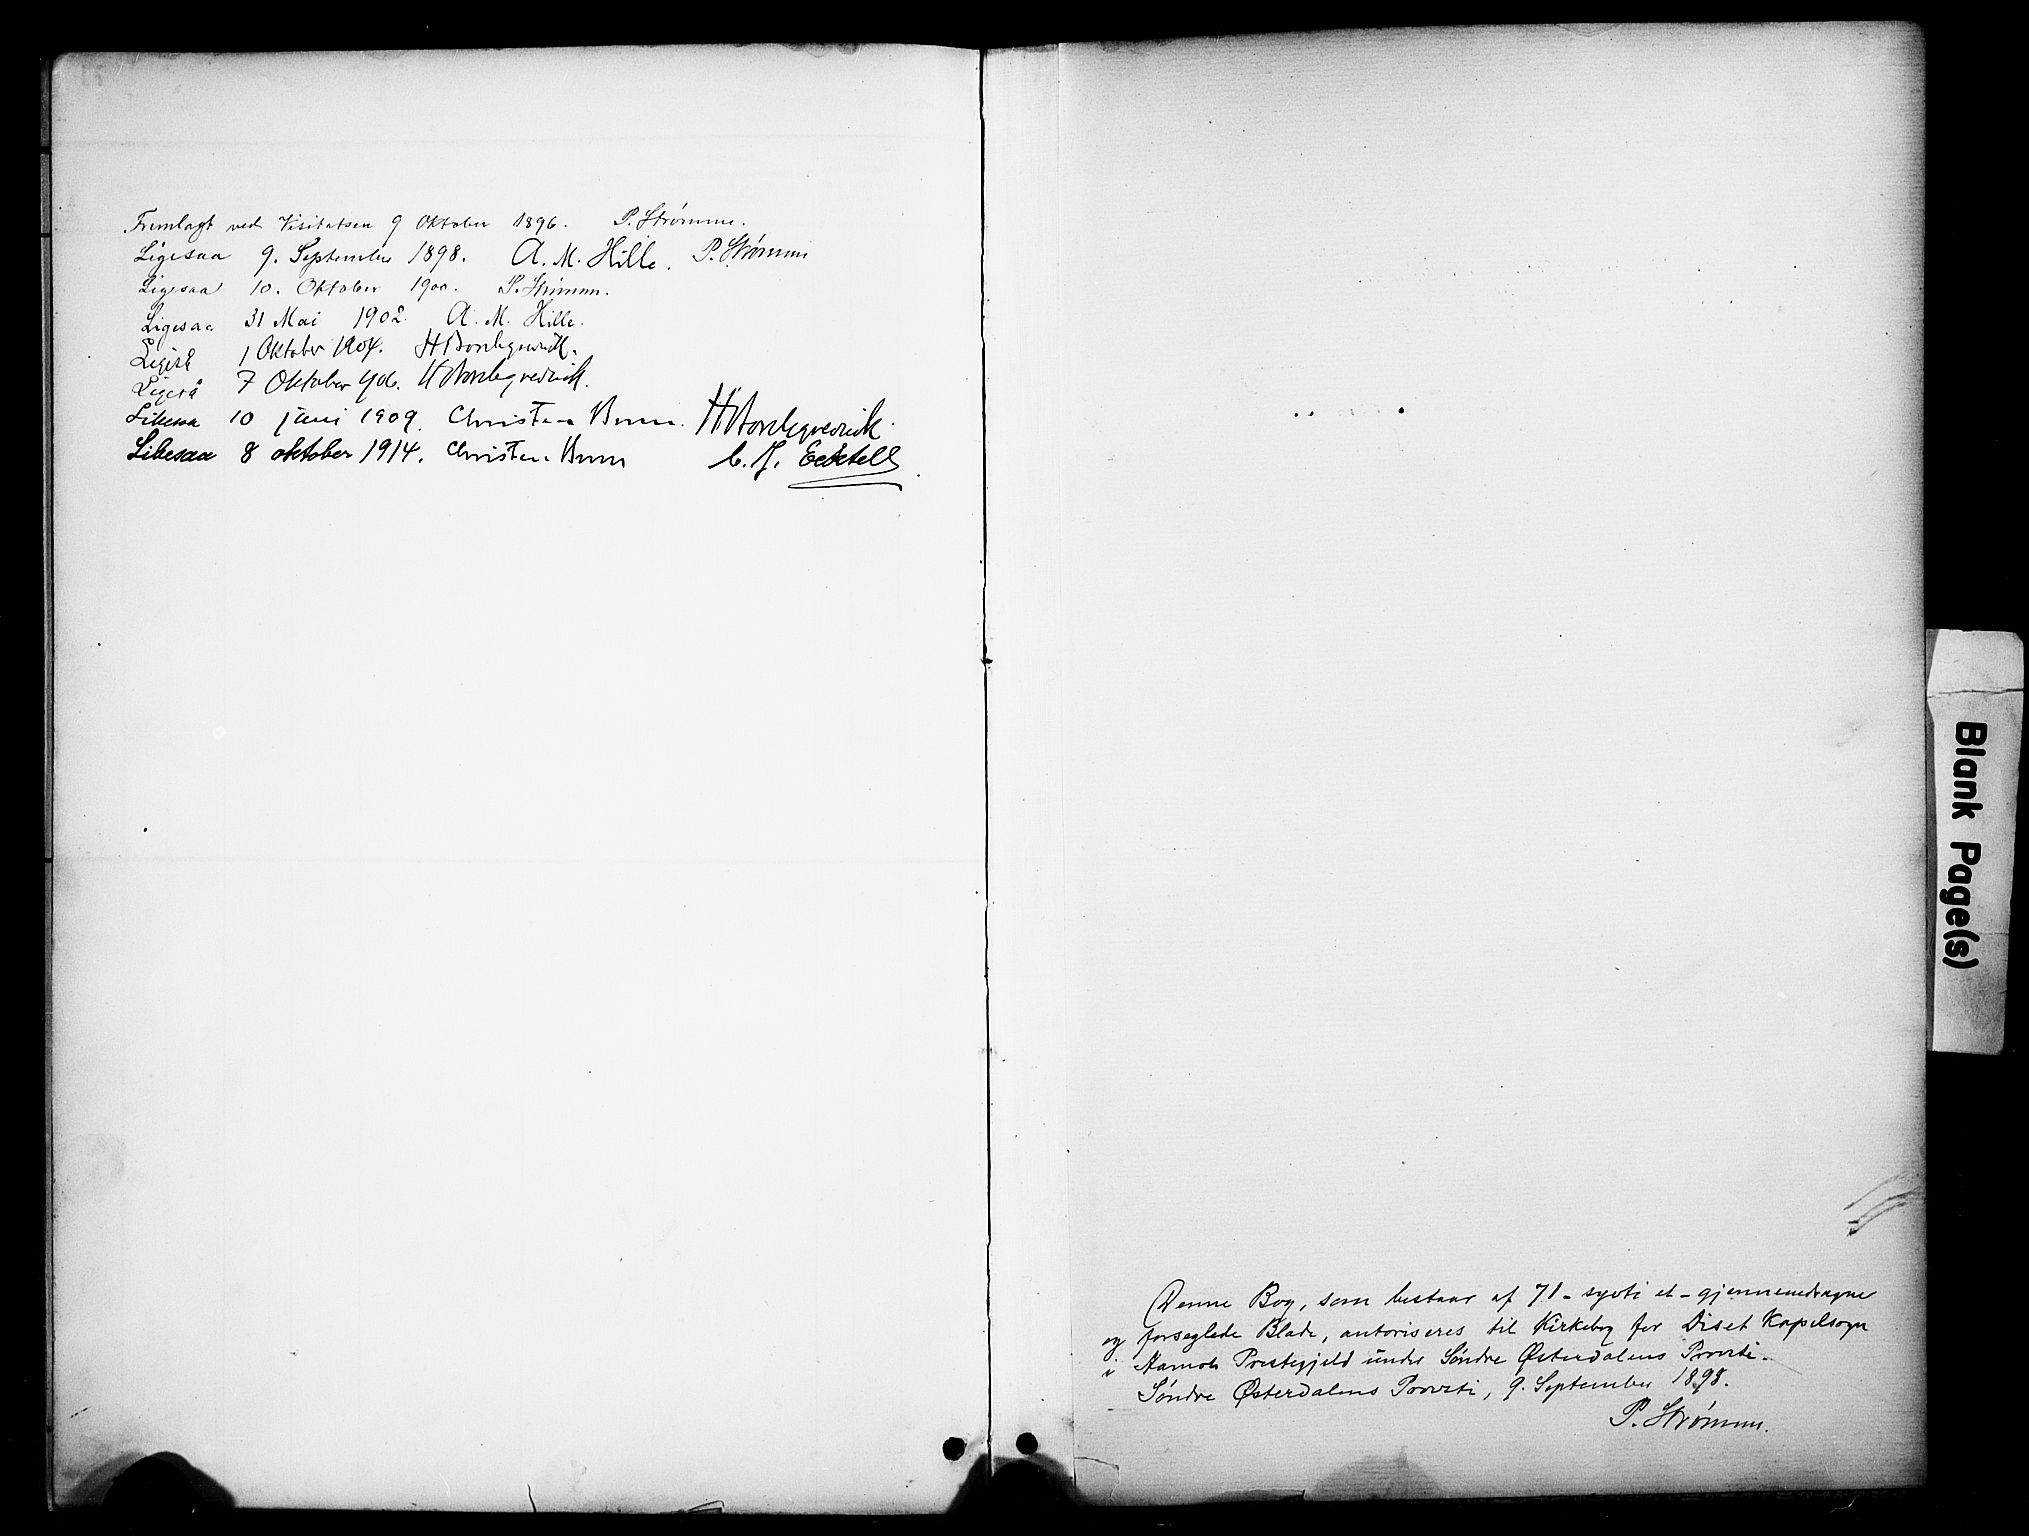 Fremlagt ved Visitatsen 9 Oktober 1896. P. Strømme.
Ligesaa 9. September 1898. A. M. Hille. P. Strømme
Ligesaa 10. Oktober 1900. P. Strømme.
Ligesaa 31 Mai 1902. A. M. Hille.
Ligeså 1 Oktober 1904.
Ligeså 7 Oktober 1906.
Likesaa 10 juni 1909. Christen Brun.
Likesaa 8 oktober 1914. Christen Brun
Denne Bog, som bestaar af 71 - sytti et - gjennemdragne
og forseglede Blade, autoriseres til Kirkebog for Diset Kapelsogn
i Aamots Prestegjeld under Søndre Østerdalens Provsti.
Søndre Østerdalens Provsti, 9. September 1898.
P. Strømme.
Blank Page(s)